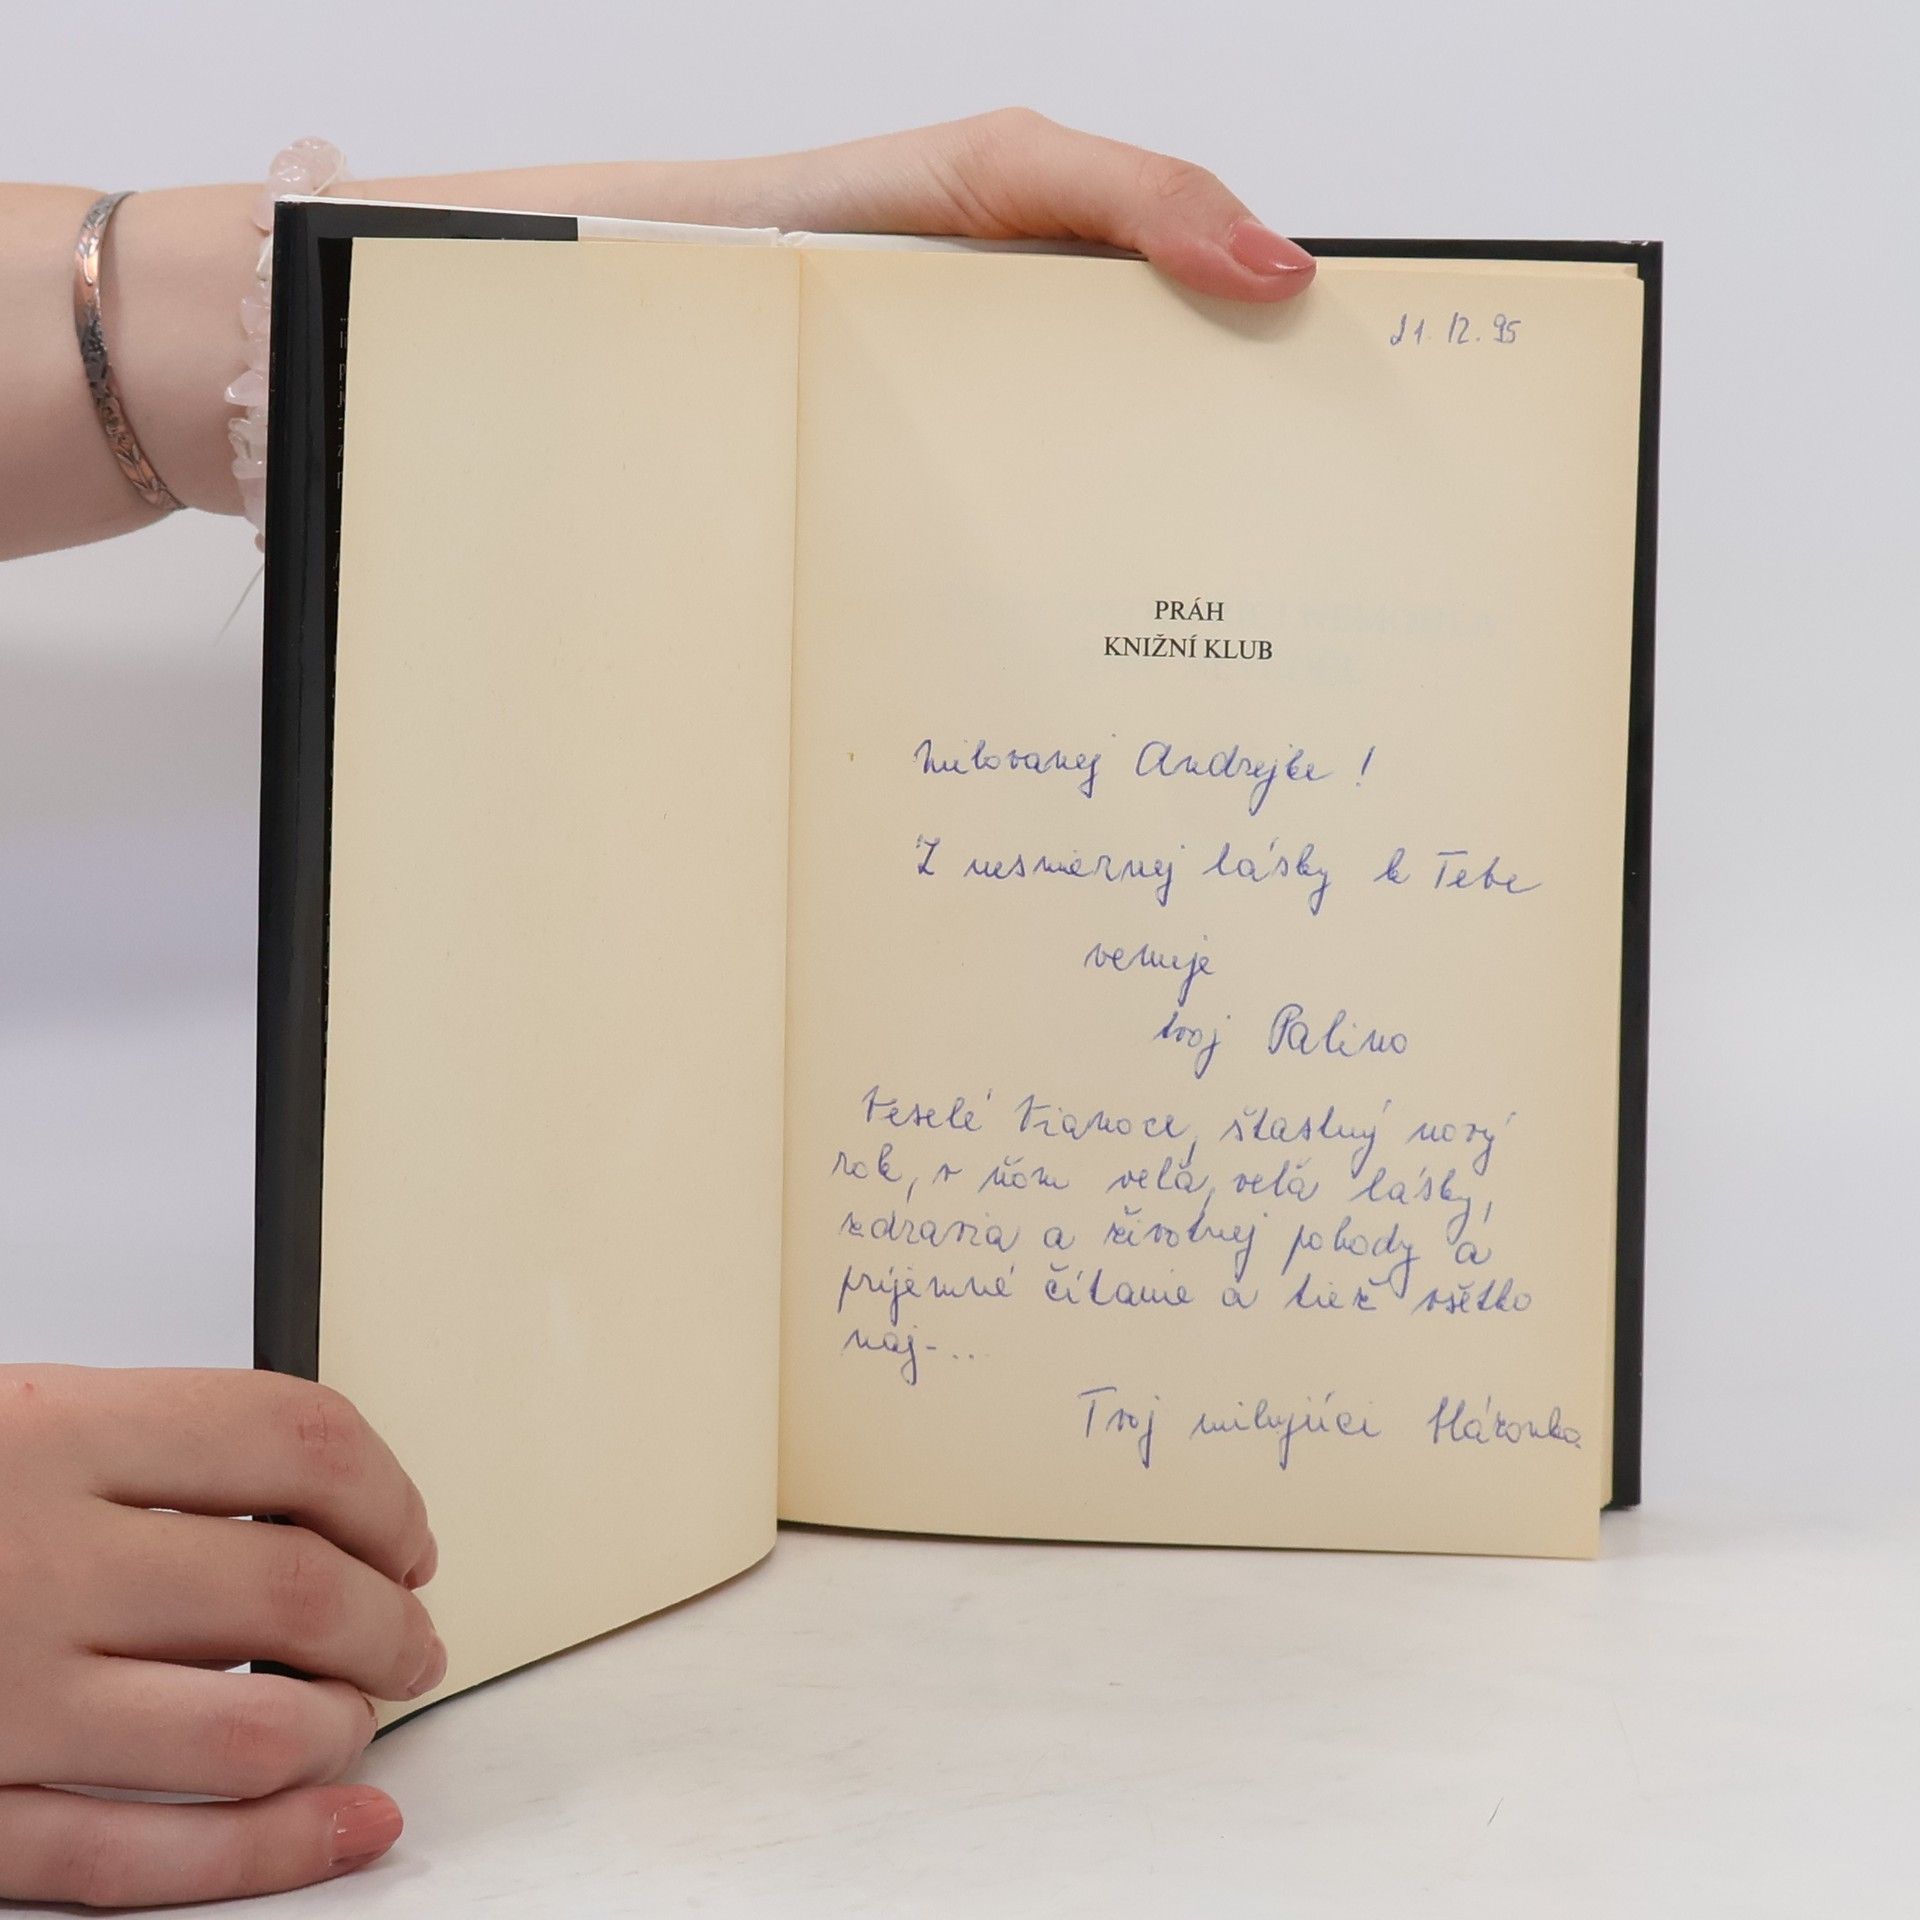 21. 12. 95
PRÁH
KNIŽNÍ KLUB
Milovanej Andrejke !
Z nesmiernej lásky k Tebe
venuje
tvoj Palino
Veselé Vianoce, štastný nový
rok, v ňom veľa, veľa lásky,
zdravia a životnej pohody a
príjemné čítanie a tiež všetko
naj-...
Tvoj milujúci